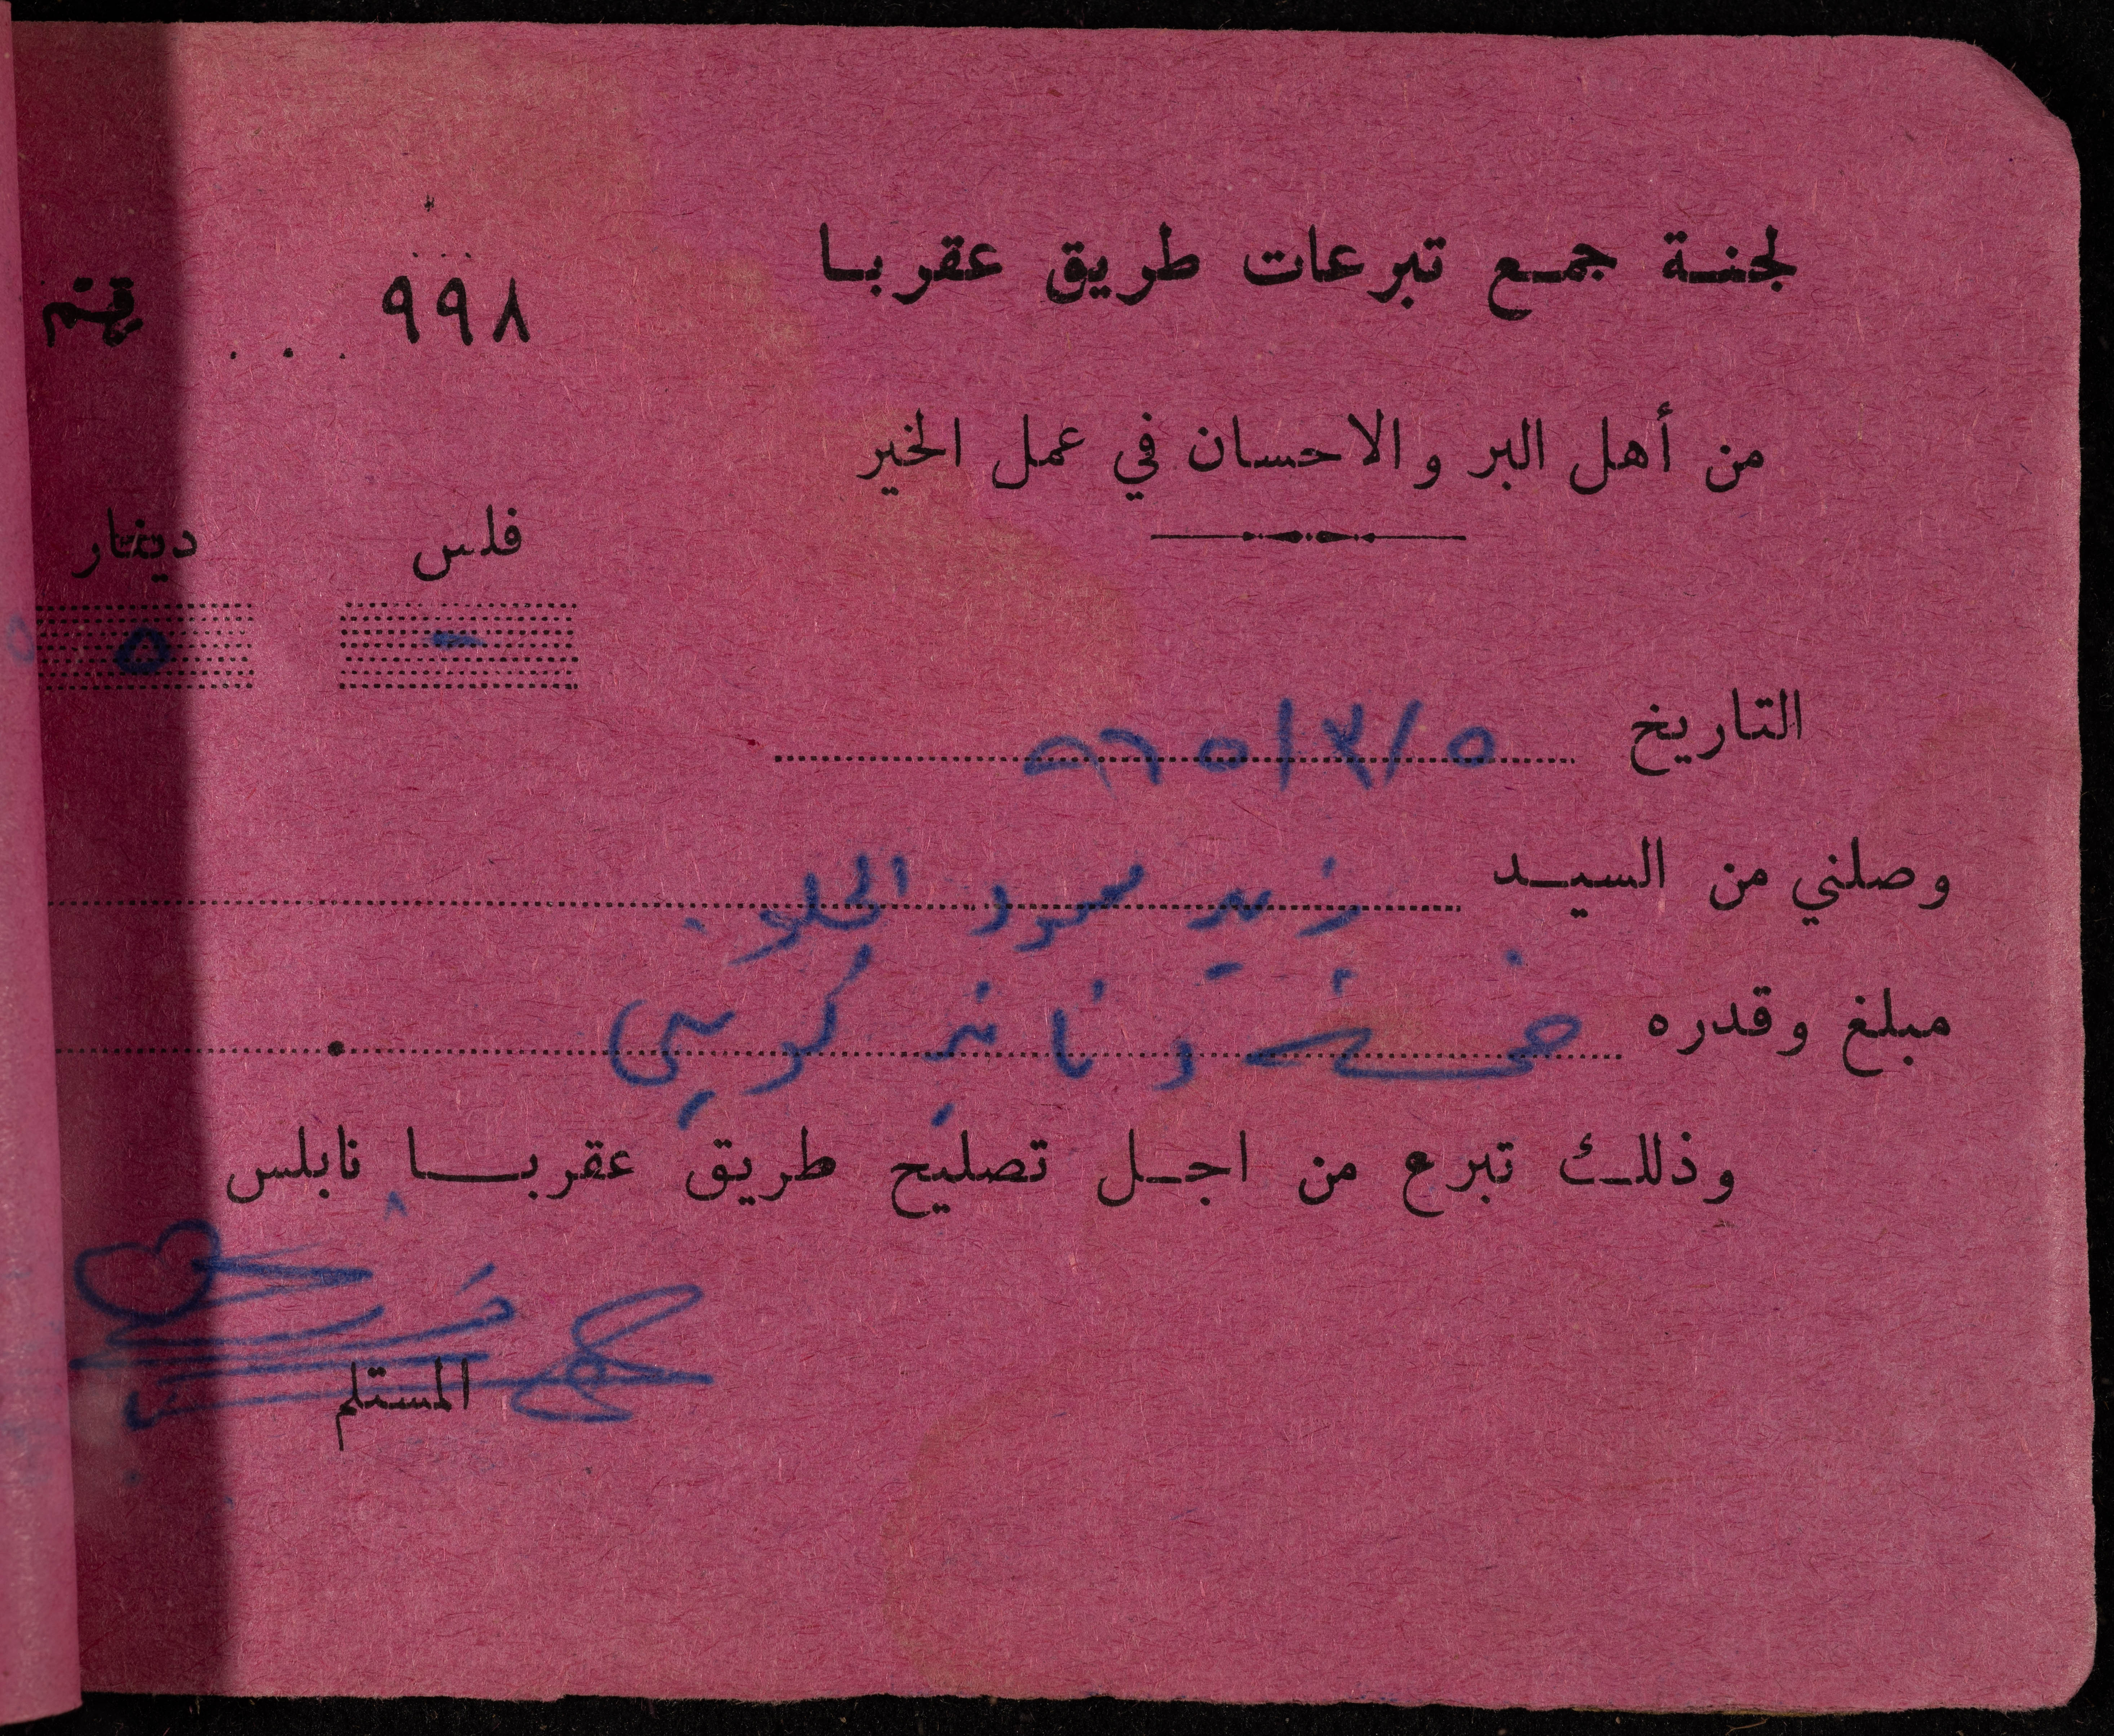 لجنة جمع تبرعات طريق عقربا
٩٩٨
من أهل البر والاحسان في عمل الخير
فلس دينار
- ٥
التاريخ ٥/٣/٩٦٥
وصلني من السيد زيد محمود الحلو
مبلغ وقدره خمسة دنانير كويتي
وذلك تبرع من اجل تصليح طريق عقربا نابلس
المستلم